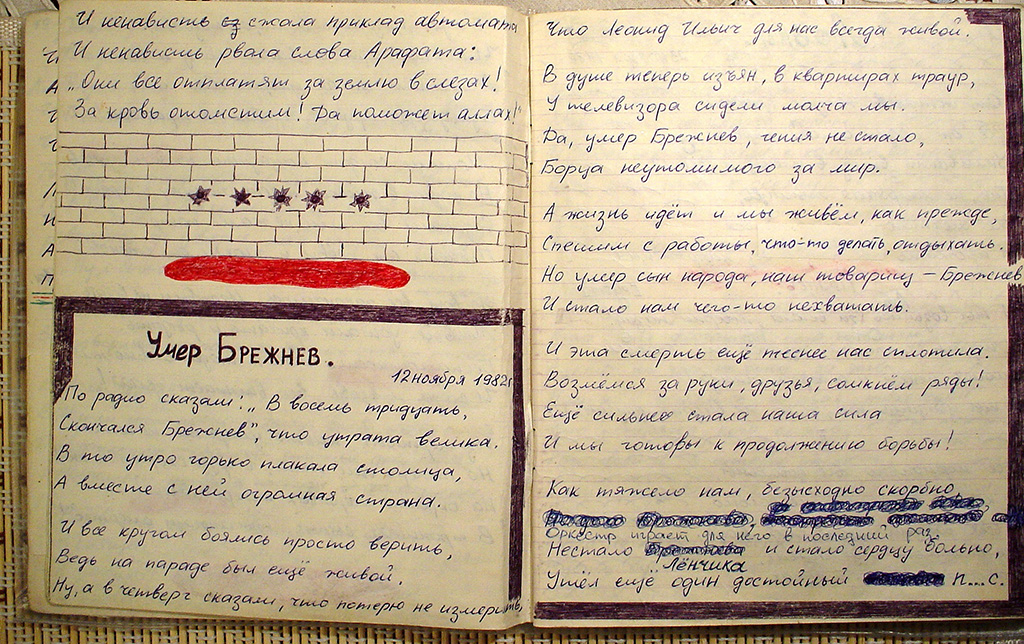 И ненависть сжала приклад автомата
И ненависть рвала слова Арафата:
„Они все отплатят за землю в слезах!
За кровь отомстим! Да поможет аллах!"
Умер Брежнев.
12 ноября 1982г.
По радио сказали: „В восемь тридцать,
Скончался Брежнев", что утрата велика.
В то утро горько плакала столица,
А вместе с ней огромная страна.
И все кругом боялись просто верить,
Ведь на параде был ещё живой.
Ну, а в четверг сказали, что потерю не измерить,
Что Леонид Ильич для нас всегда живой.
В душе теперь изъян, в квартирах траур,
У телевизора сидели молча мы.
Да, умер Брежнев, гения не стало,
Борца неутомимого за мир.
А жизнь идёт и мы живём, как прежде,
Спешим с работы, что-то делать, отдыхать.
Но умер сын народа, наш товарищ – Брежнев
И стало нам чего-то нехватать.
И эта смерть ещё теснее нас сплотила.
Возмёмся за руки, друзья, сомкнём ряды!
Ещё сильнею стала наша сила
И мы готовы к продолжению борьбы!
Как тяжело нам, безысходно скорбно
Оркестр играет для него в последний раз.
Нестало Лёнчика и стало сердцу больно,
Ушёл ещё один достойный п...с.